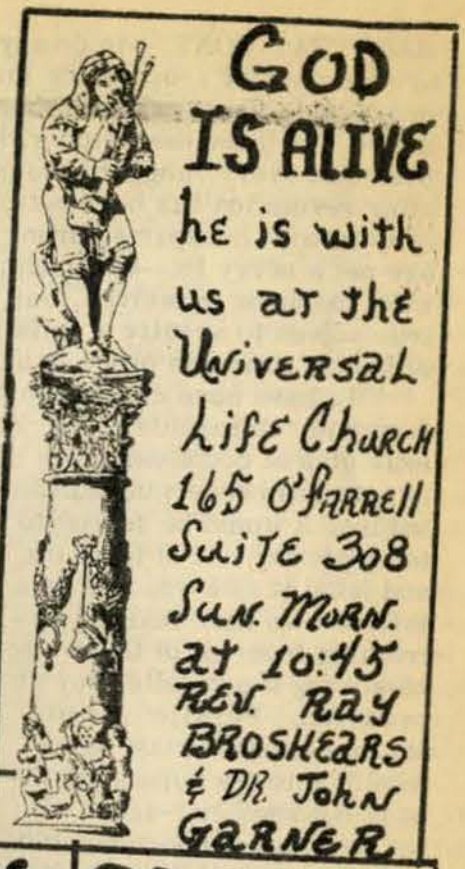 GOD
IS ALIVE
he is with
us at the
Universal
Life Church
165 O'Farrell
Suite 308
Sun. Morn.
at 10:45
Rev. Ray
Broshears
& Dr. John
Garner